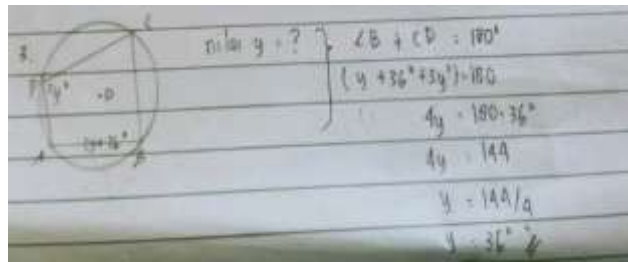 3.
C
D
3y°
O
(y+36°)
A
B
nilai y = ?
∠B + ∠D = 180°
(y + 36° + 3y°) = 180
4y = 180 - 36°
4y = 144
y = 144/4
y = 36°